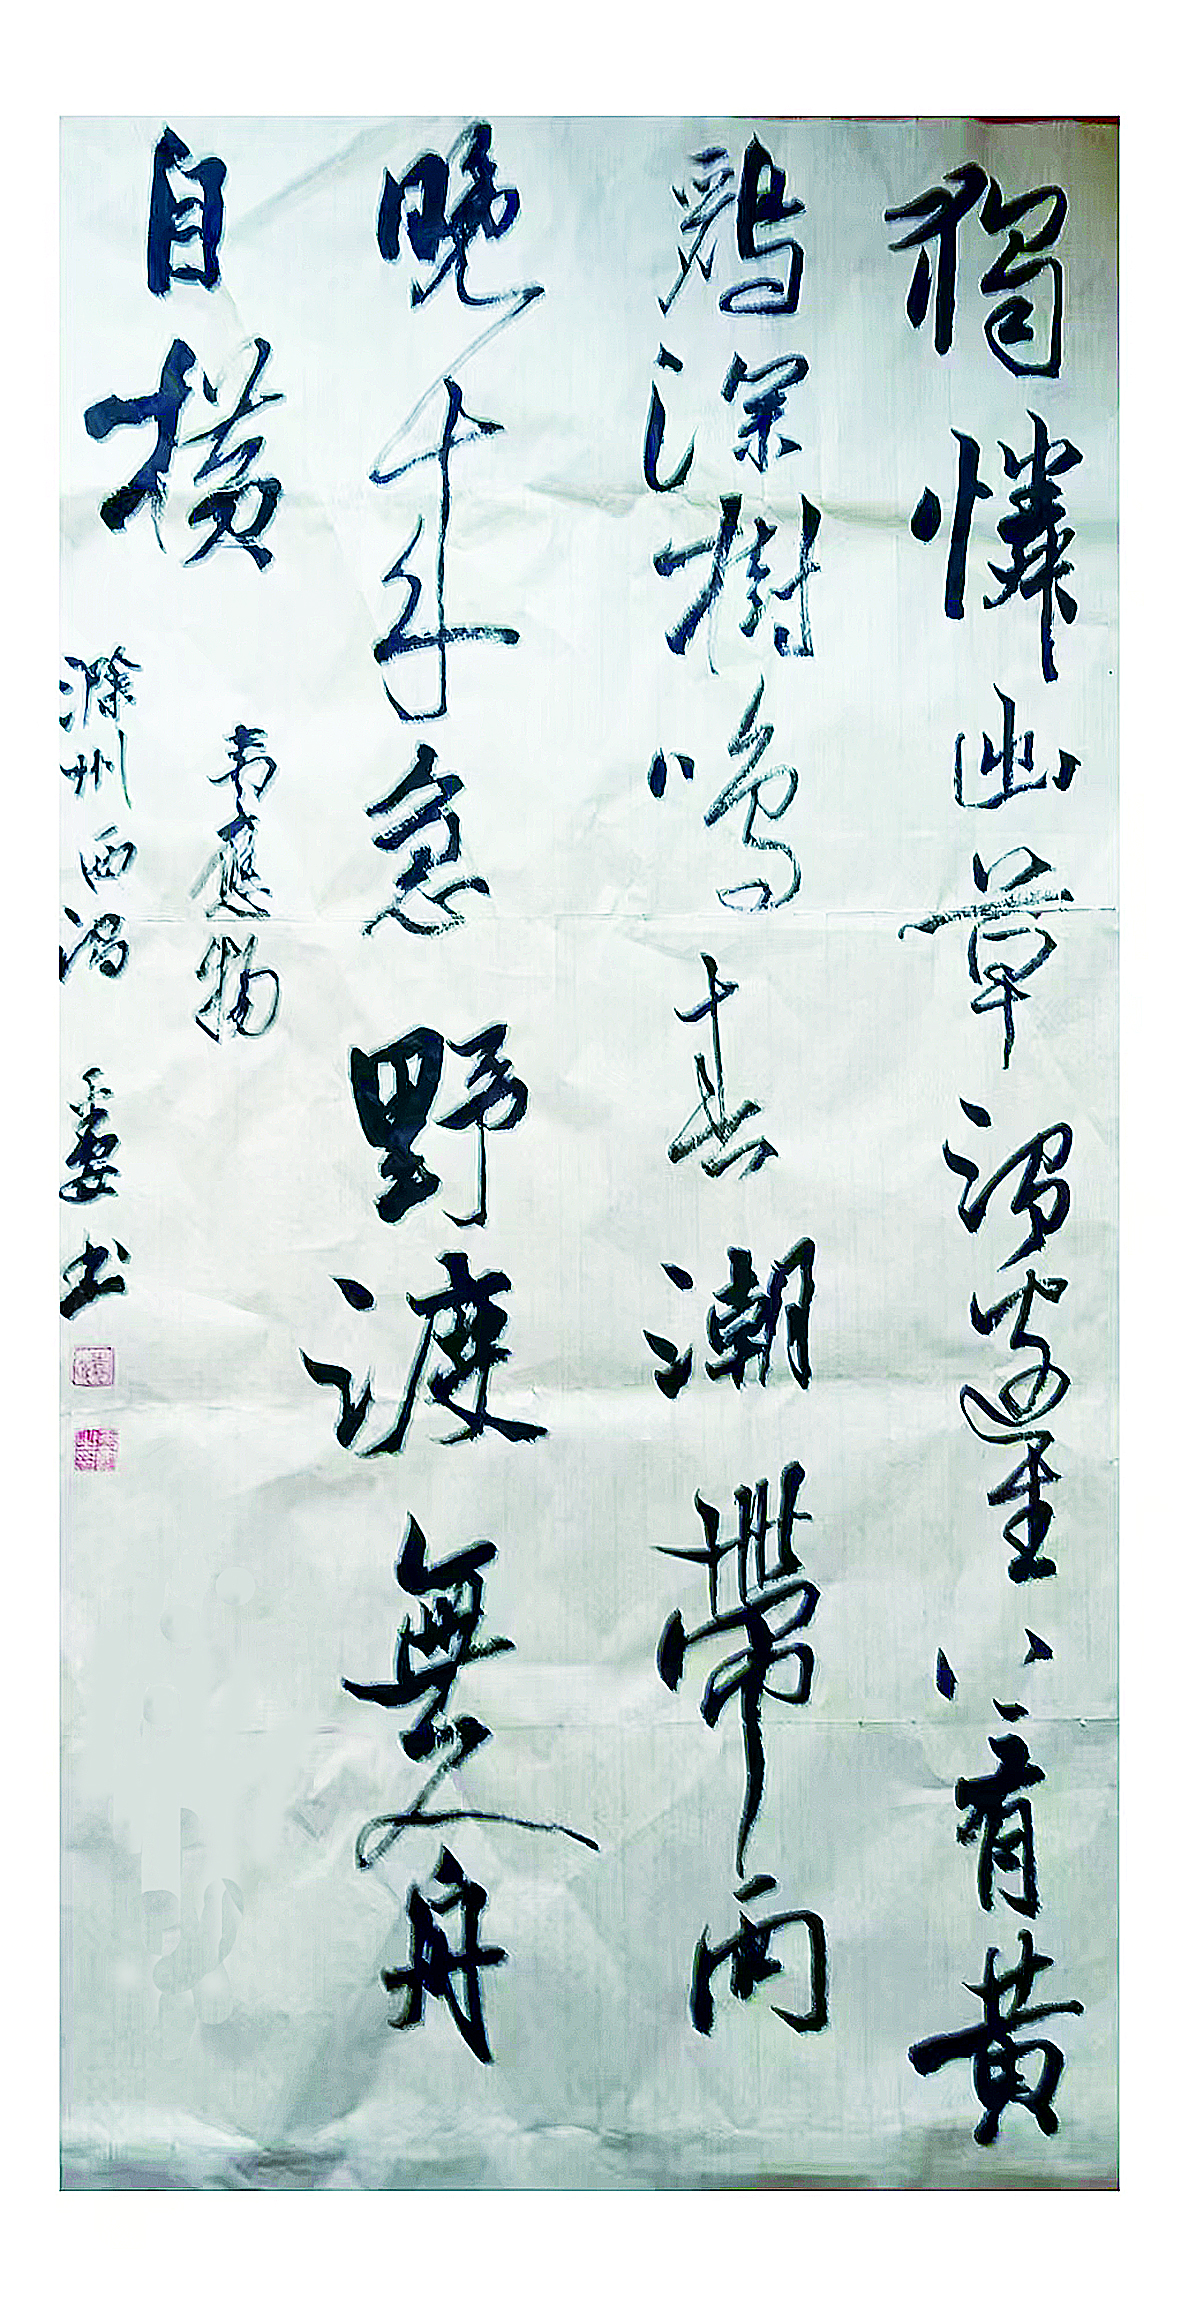 獨憐幽草澗邊生上有黃
鸝深樹鳴春潮帶雨
晚來急野渡無人舟
自橫
韋應物
滁州西澗 书